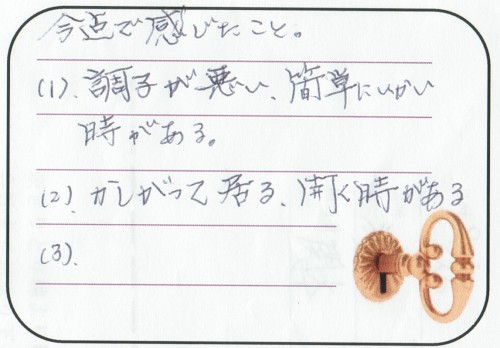 今迄で感じたこと。
(1). 調子が悪い、簡単にいかい
時がある。
(2). かしがって居る、開く時がある
(3).